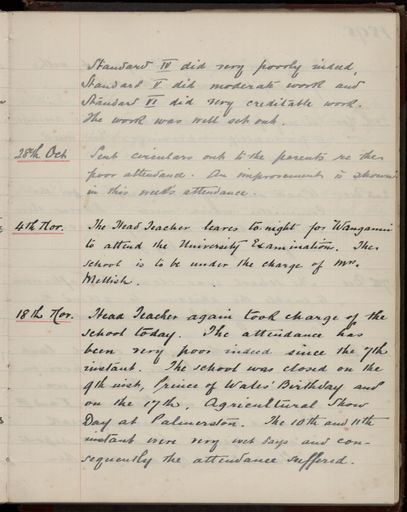 Standard IV did very poorly indeed,
Standard V did moderate work and
Standard VI did very creditable work.
The work was well set out.
28th Oct. Sent circulars out to the parents re the
poor attendance. An improvement is shown
in this week's attendance.
4th Nov. The Head Teacher leaves to-night for Wanganui
to attend the University Examination. The
School is to be under the charge of Mrs.
Mellish.
18th Nov. Head Teacher again took charge of the
School today. The attendance has
been very poor indeed since the 7th
instant. The School was closed on the
9th inst, Prince of Wales' Birthday and
on the 17th, Agricultural Show
Day at Palmerston. The 10th and 11th
instant were very wet days and con-
sequently the attendance suffered.